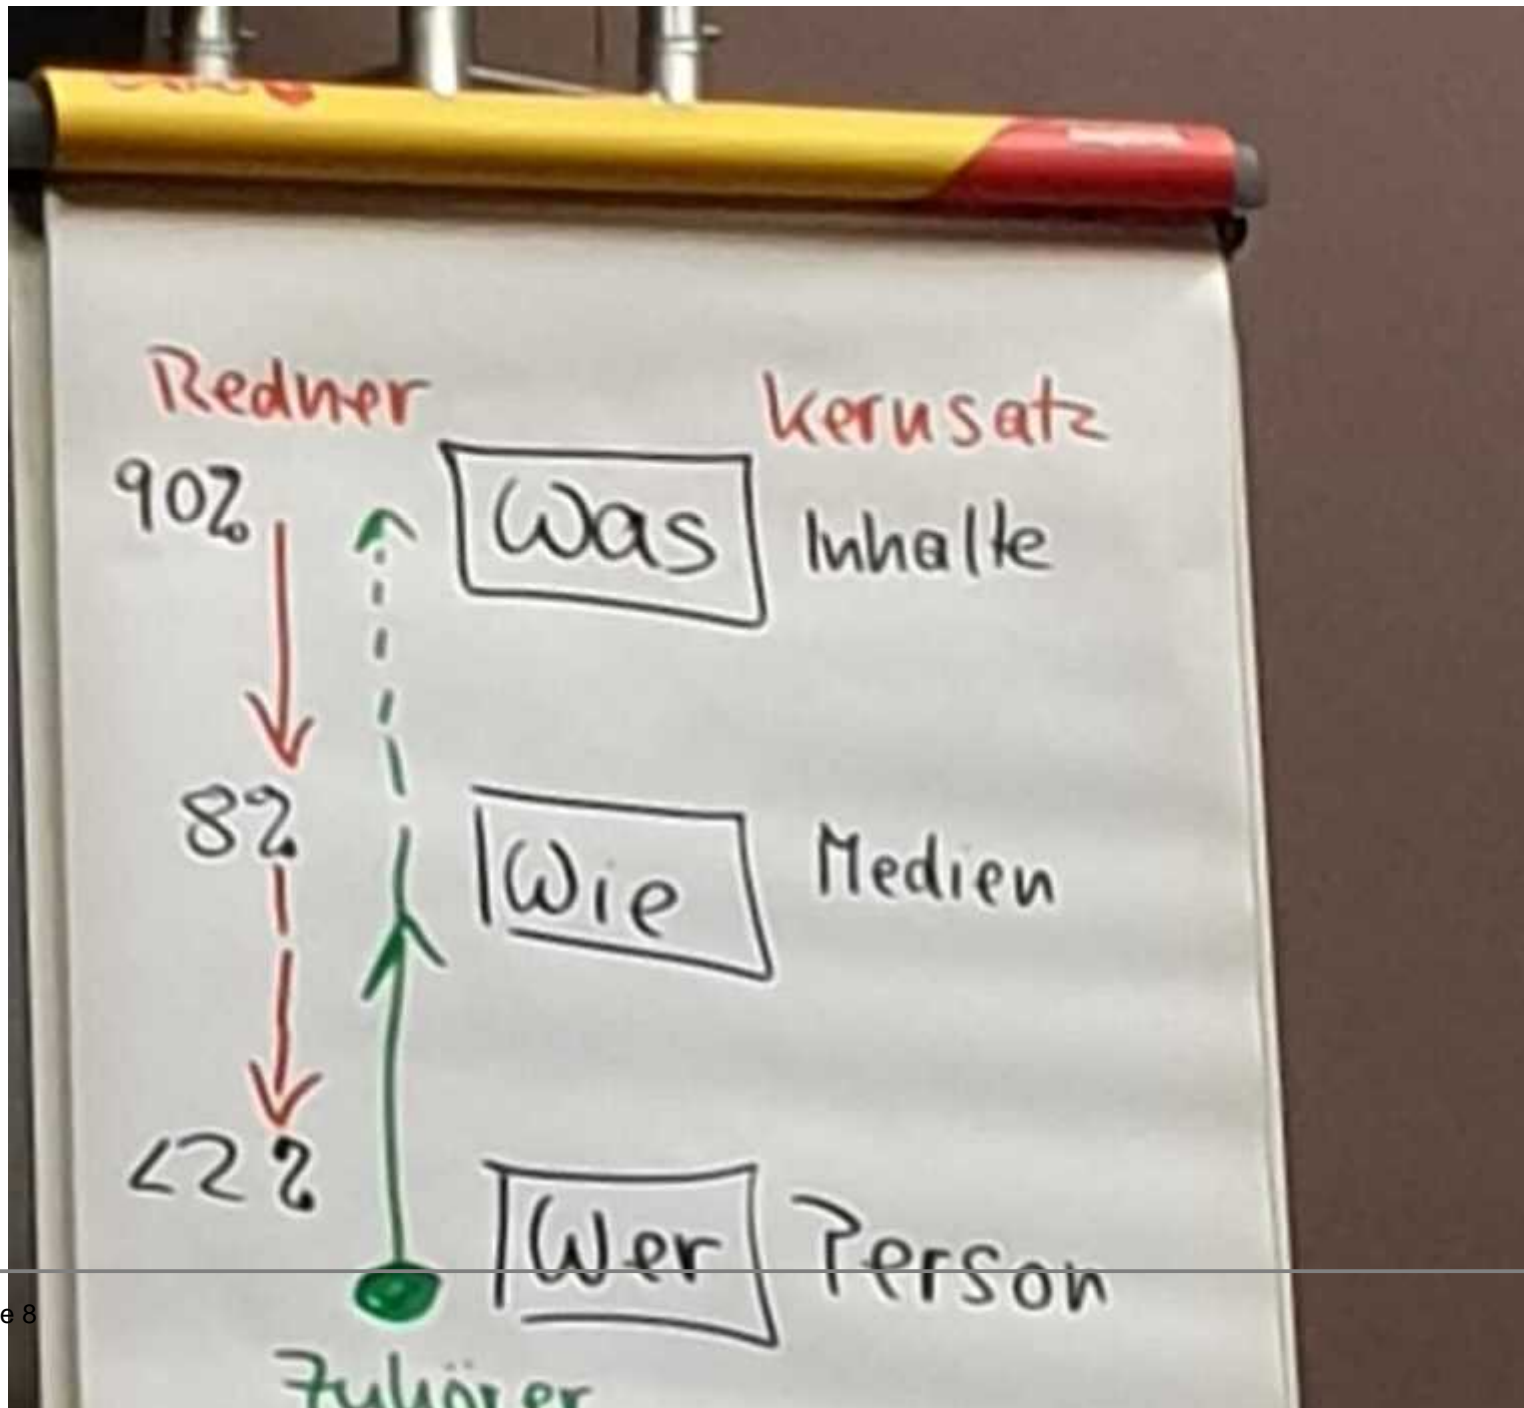 Redner
Kernsatz
90%
Was
Inhalte
8%
Wie
Medien
<2%
Wer
Person
e 8
Zuhörer